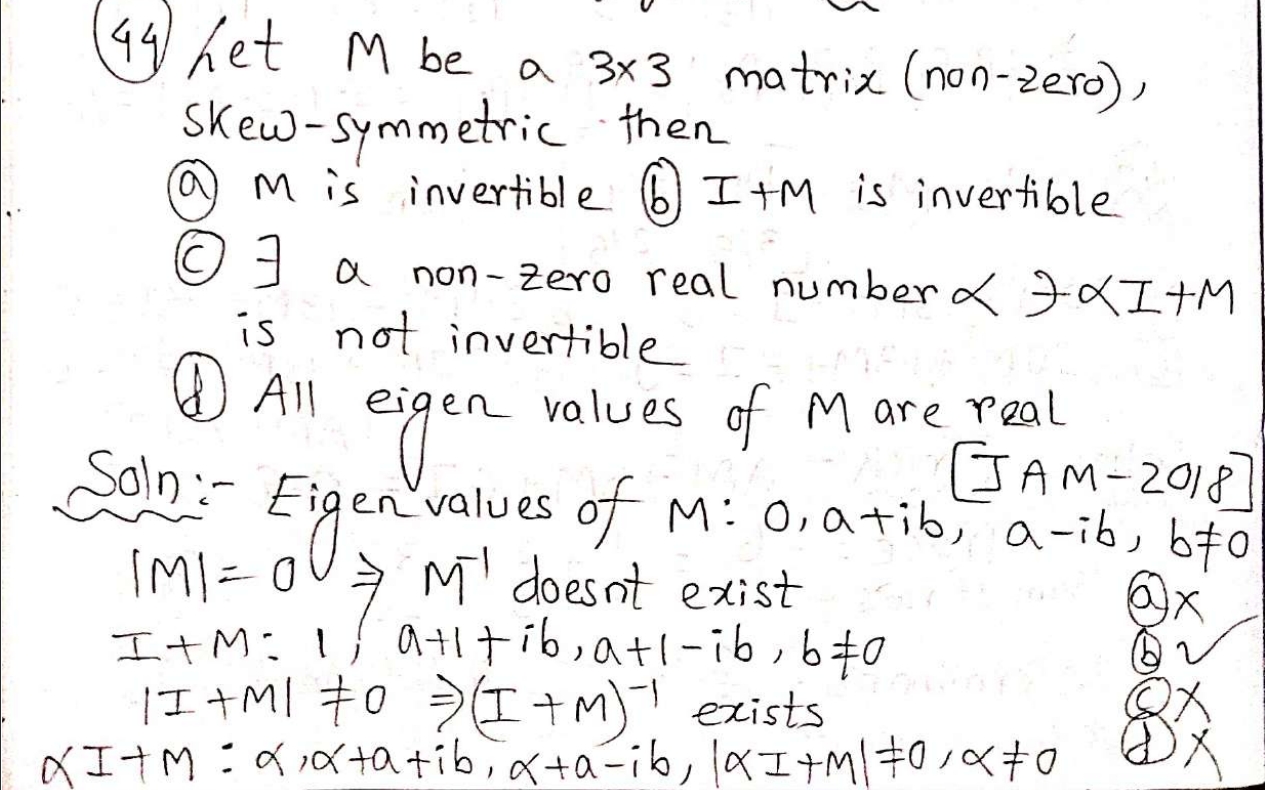 (44) Let M be a 3x3 matrix (non-zero),
skew-symmetric then
(a) M is invertible (b) I+M is invertible
(c) ∃ a non-zero real number α ∋ αI+M
is not invertible
(d) All eigen values of M are real
[JAM-2018]
Soln:- Eigen values of M: 0, a+ib, a-ib, b≠0
|M|=0 ⇒ M⁻¹ doesnt exist (a) x
I+M: 1, a+1+ib, a+1-ib, b≠0 (b) ✓
|I+M| ≠0 ⇒ (I+M)⁻¹ exists (c) x
αI+M: α, α+a+ib, α+a-ib, |αI+M|≠0, α≠0 (d) x